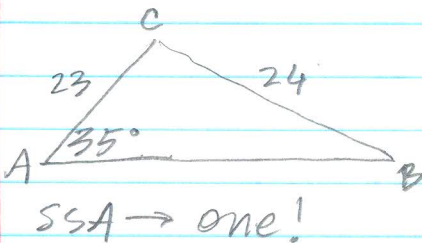 C
23
24
35°
A
B
SSA → one!